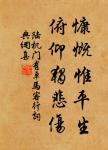 慷慨惟平生
俯仰獨悲傷
陸机門有車馬客行詞